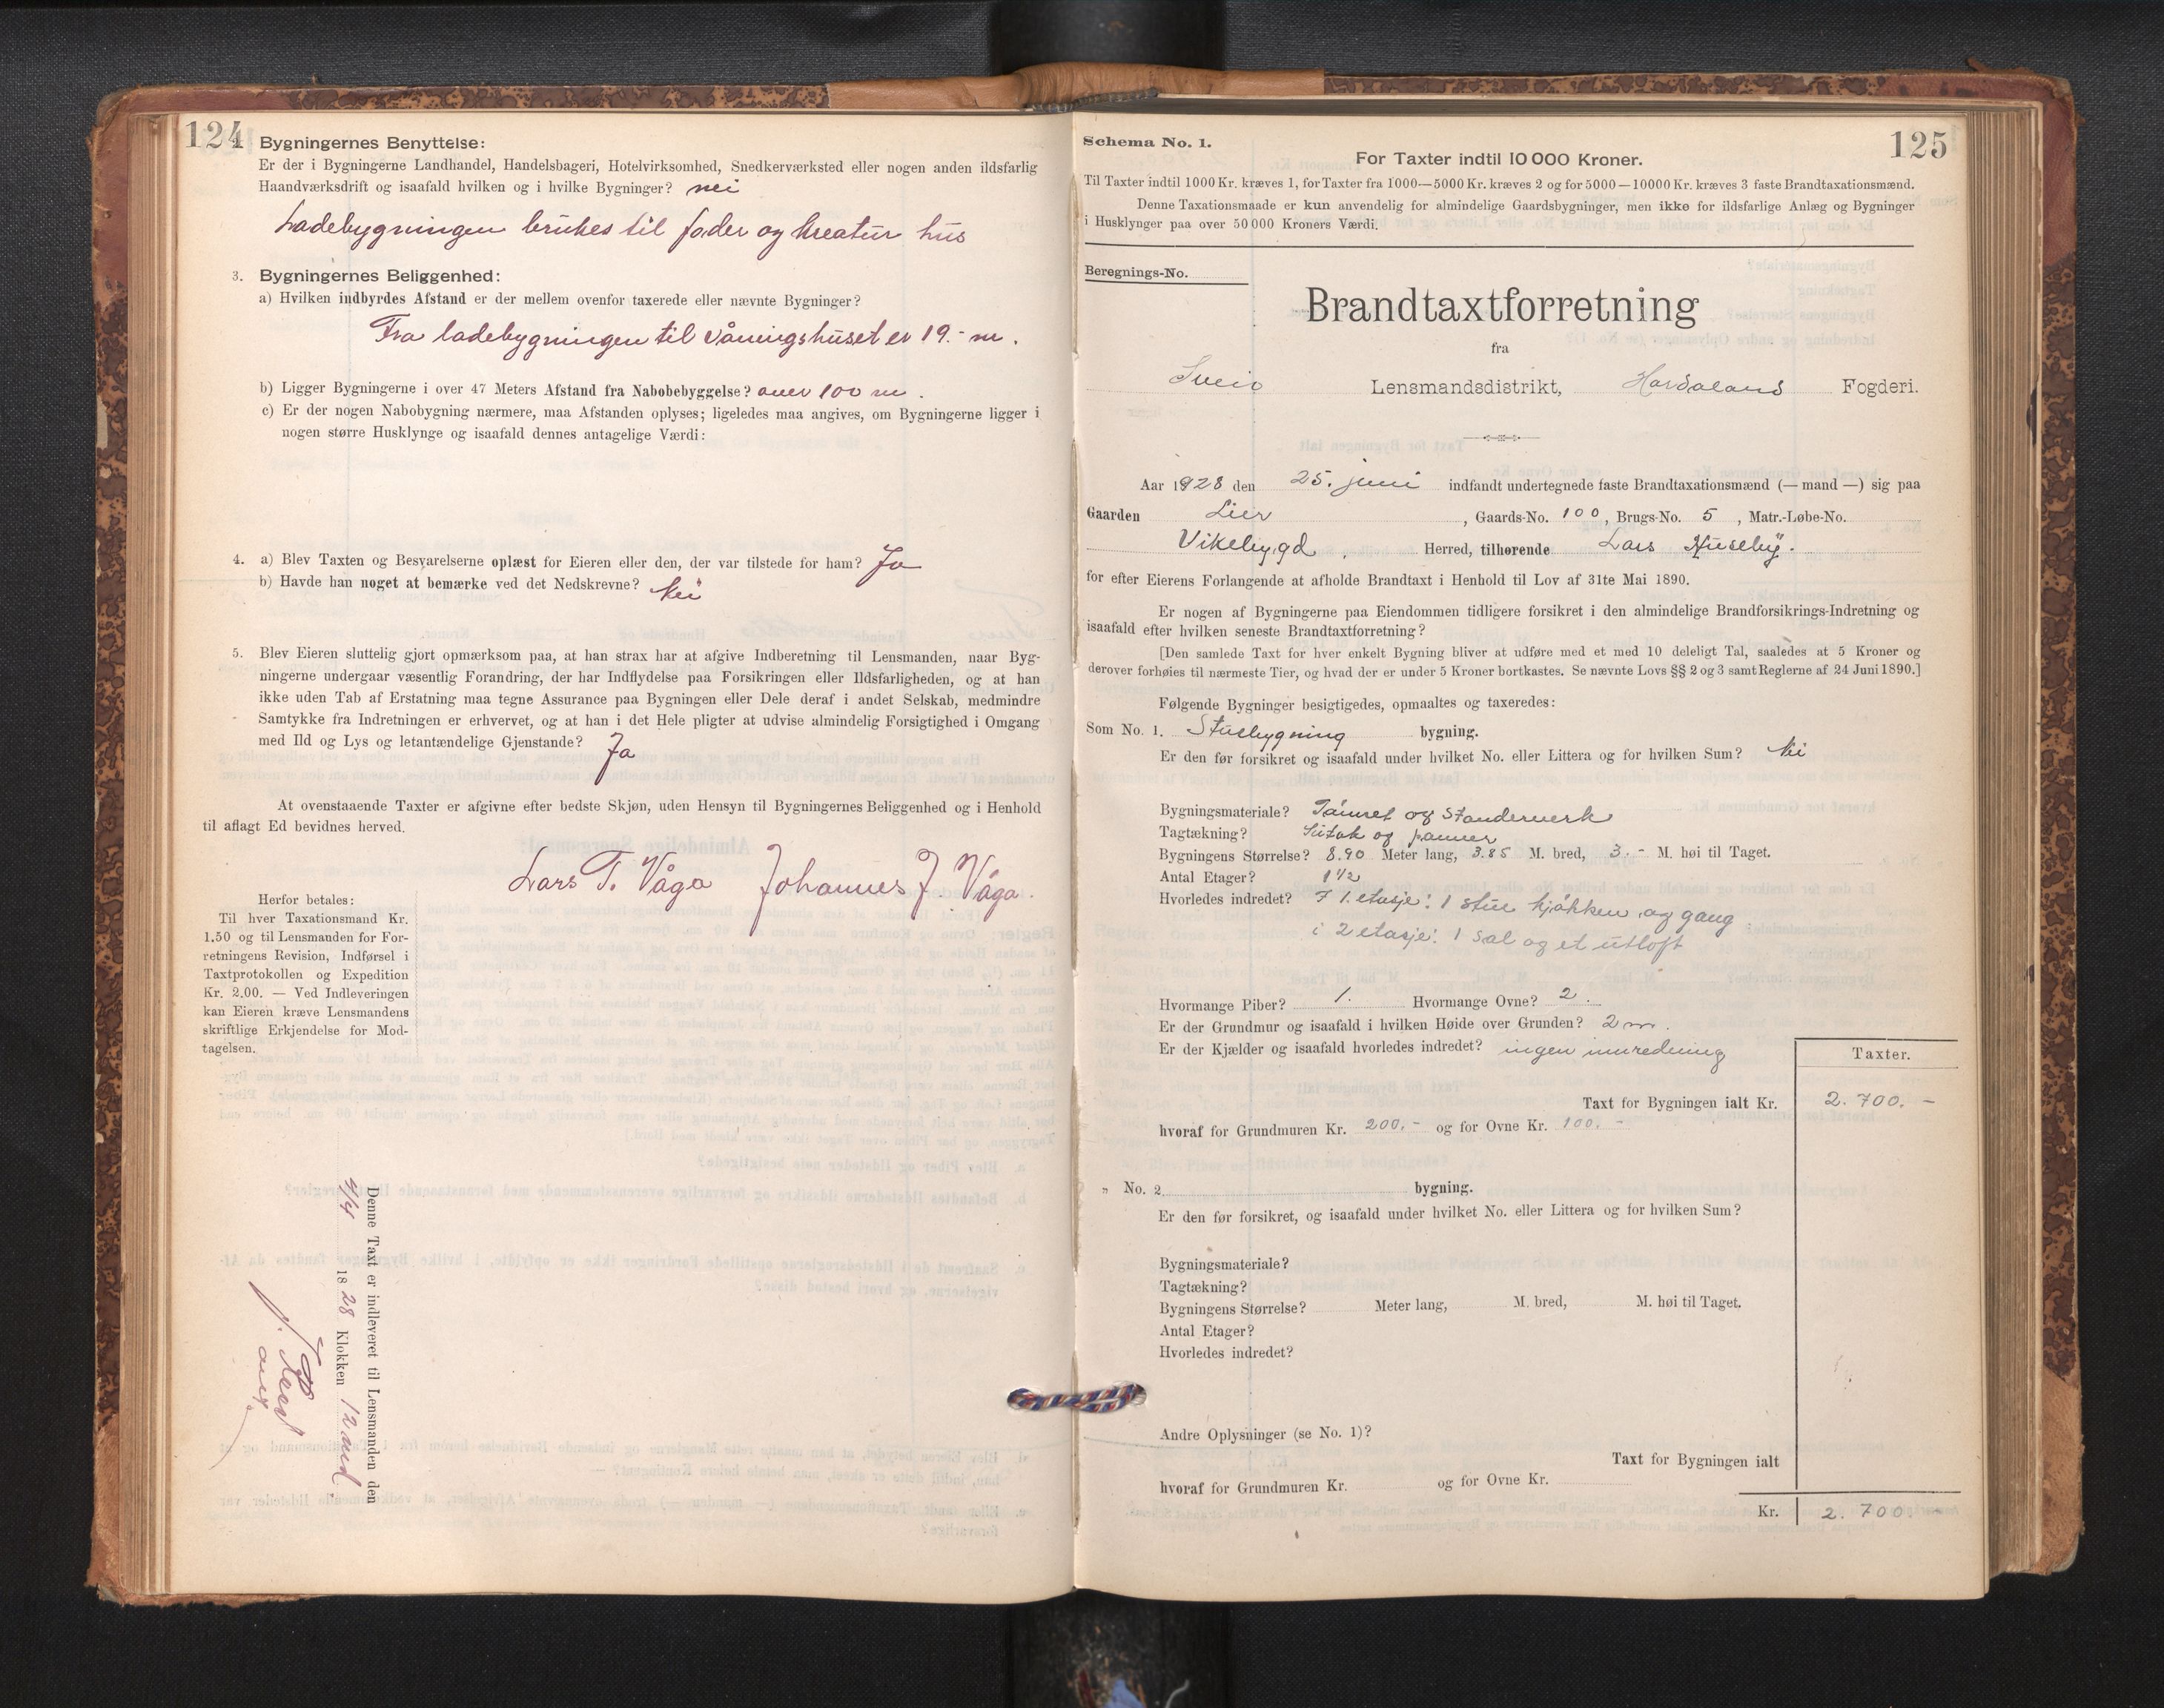 124
Bygningernes Benyttelse:
Er der i Bygningerne Landhandel, Handelsbageri, Hotelvirksomhed, Snedkerværksted eller nogen anden ildsfarlig
Haandværksdrift og isaafald hvilken og i hvilke Bygninger? nei
Ladebygningen brukes til foder og kreatur hus
3. Bygningernes Beliggenhed:
a) Hvilken indbyrdes Afstand er der mellem ovenfor taxerede eller nævnte Bygninger?
Fra ladebygningen til våningshuset er 19.- m.
b) Ligger Bygningerne i over 47 Meters Afstand fra Nabobebyggelse? over 100 m.
c) Er der nogen Nabobygning nærmere, maa Afstanden oplyses; ligeledes maa angives, om Bygningerne ligger i
nogen større Husklynge og isaafald dennes antagelige Værdi:
4. a) Blev Taxten og Besvarelserne oplæst for Eieren eller den, der var tilstede for ham? Ja
b) Havde han noget at bemærke ved det Nedskrevne? Nei
5. Blev Eieren sluttelig gjort opmærksom paa, at han strax har at afgive Indberetning til Lensmanden, naar Byg-
ningerne undergaar væsentlig Forandring, der har Indflydelse paa Forsikringen eller Ildsfarligheden, og at han
ikke uden Tab af Erstatning maa tegne Assurance paa Bygningen eller Dele deraf i andet Selskab, medmindre
Samtykke fra Indretningen er erhvervet, og at han i det Hele pligter at udvise almindelig Forsigtighed i Omgang
med Ild og Lys og letantændelige Gjenstande? Ja
At ovenstaaende Taxter er afgivne efter bedste Skjøn, uden Hensyn til Bygningernes Beliggenhed og i Henhold
til aflagt Ed bevidnes herved.
Lars T. Våga Johannes J. Våga.
Herfor betales:
Til hver Taxationsmand Kr.
1.50 og til Lensmanden for For-
retningens Revision, Indførsel i
Taxtprotokollen og Expedition
Kr. 2.00. — Ved Indleveringen
kan Eieren kræve Lensmandens
skriftlige Erkjendelse for Mod-
tagelsen.
Denne Taxt er indleveret til Lensmanden den
1828 Klokken 12 mid.
Schema No. 1.
125
For Taxter indtil 10 000 Kroner.
Til Taxter indtil 1000 Kr. kræves 1, for Taxter fra 1000—5000 Kr. kræves 2 og for 5000—10000 Kr. kræves 3 faste Brandtaxationsmænd.
Denne Taxationsmaade er kun anvendelig for almindelige Gaardsbygninger, men ikke for ildsfarlige Anlæg og Bygninger
i Husklynger paa over 50 000 Kroners Værdi.
Beregnings-No.
Brandtaxtforretning
fra
Sveio Lensmandsdistrikt, Hordaland Fogderi.
Aar 1928 den 25. juni indfandt undertegnede faste Brandtaxationsmænd (— mand —) sig paa
Gaarden Lier, Gaards-No. 100, Brugs-No. 5, Matr.-Løbe-No.
Vikebygd Herred, tilhørende Lars Huseby.
for efter Eierens Forlangende at afholde Brandtaxt i Henhold til Lov af 31te Mai 1890.
Er nogen af Bygningerne paa Eiendommen tidligere forsikret i den almindelige Brandforsikrings-Indretning og
isaafald efter hvilken seneste Brandtaxtforretning?
[Den samlede Taxt for hver enkelt Bygning bliver at udføre med et med 10 deleligt Tal, saaledes at 5 Kroner og
derover forhøies til nærmeste Tier, og hvad der er under 5 Kroner bortkastes. Se nævnte Lovs §§ 2 og 3 samt Reglerne af 24 Juni 1890.]
Følgende Bygninger besigtigedes, opmaaltes og taxeredes:
Som No. 1. Stuebygning bygning.
Er den før forsikret og isaafald under hvilket No. eller Littera og for hvilken Sum? Nei
Bygningsmateriale? Tømret og Standerverk
Tagtækning? Sutak og panner
Bygningens Størrelse? 8.90 Meter lang, 3.85 M. bred, 3.- M. høi til Taget.
Antal Etager? 1 1/2
Hvorledes indredet? I 1. etasje: 1 stue kjøkken og gang
i 2 etasje: 1 sal og et utloft
Hvormange Piber? 1. Hvormange Ovne? 2.
Er der Grundmur og isaafald i hvilken Høide over Grunden? 2 m.
Er der Kjælder og isaafald hvorledes indredet? ingen innredning
Taxter.
Taxt for Bygningen ialt Kr. 2.700.-
hvoraf for Grundmuren Kr. 200.- og for Ovne Kr. 100.-
„ No. 2. bygning.
Er den før forsikret, og isaafald under hvilket No. eller Littera og for hvilken Sum?
Bygningsmateriale?
Tagtækning?
Bygningens Størrelse? Meter lang, M. bred, M. høi til Taget.
Antal Etager?
Hvorledes indredet?
Andre Oplysninger (se No. 1)?
Taxt for Bygningen ialt
hvoraf for Grundmuren Kr. og for Ovne Kr.
Kr. 2.700.-